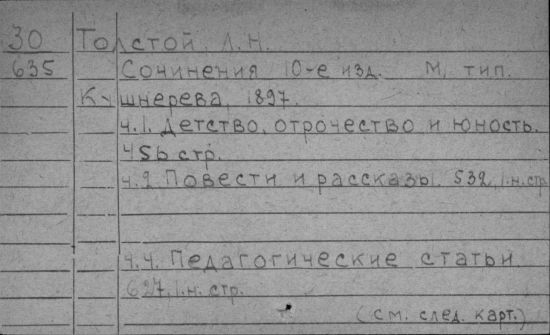 30 Толстой, Л.Н.
635 Сочинения 10-е изд. М, тип.
Кушнерева, 1897.
ч.1. Детство, отрочество и юность.
456 стр.
ч.2 Повести и рассказы. 532, 1.н.стр
ч.4. Педагогические статьи.
627, 1.н. стр.
(см. след. карт.)